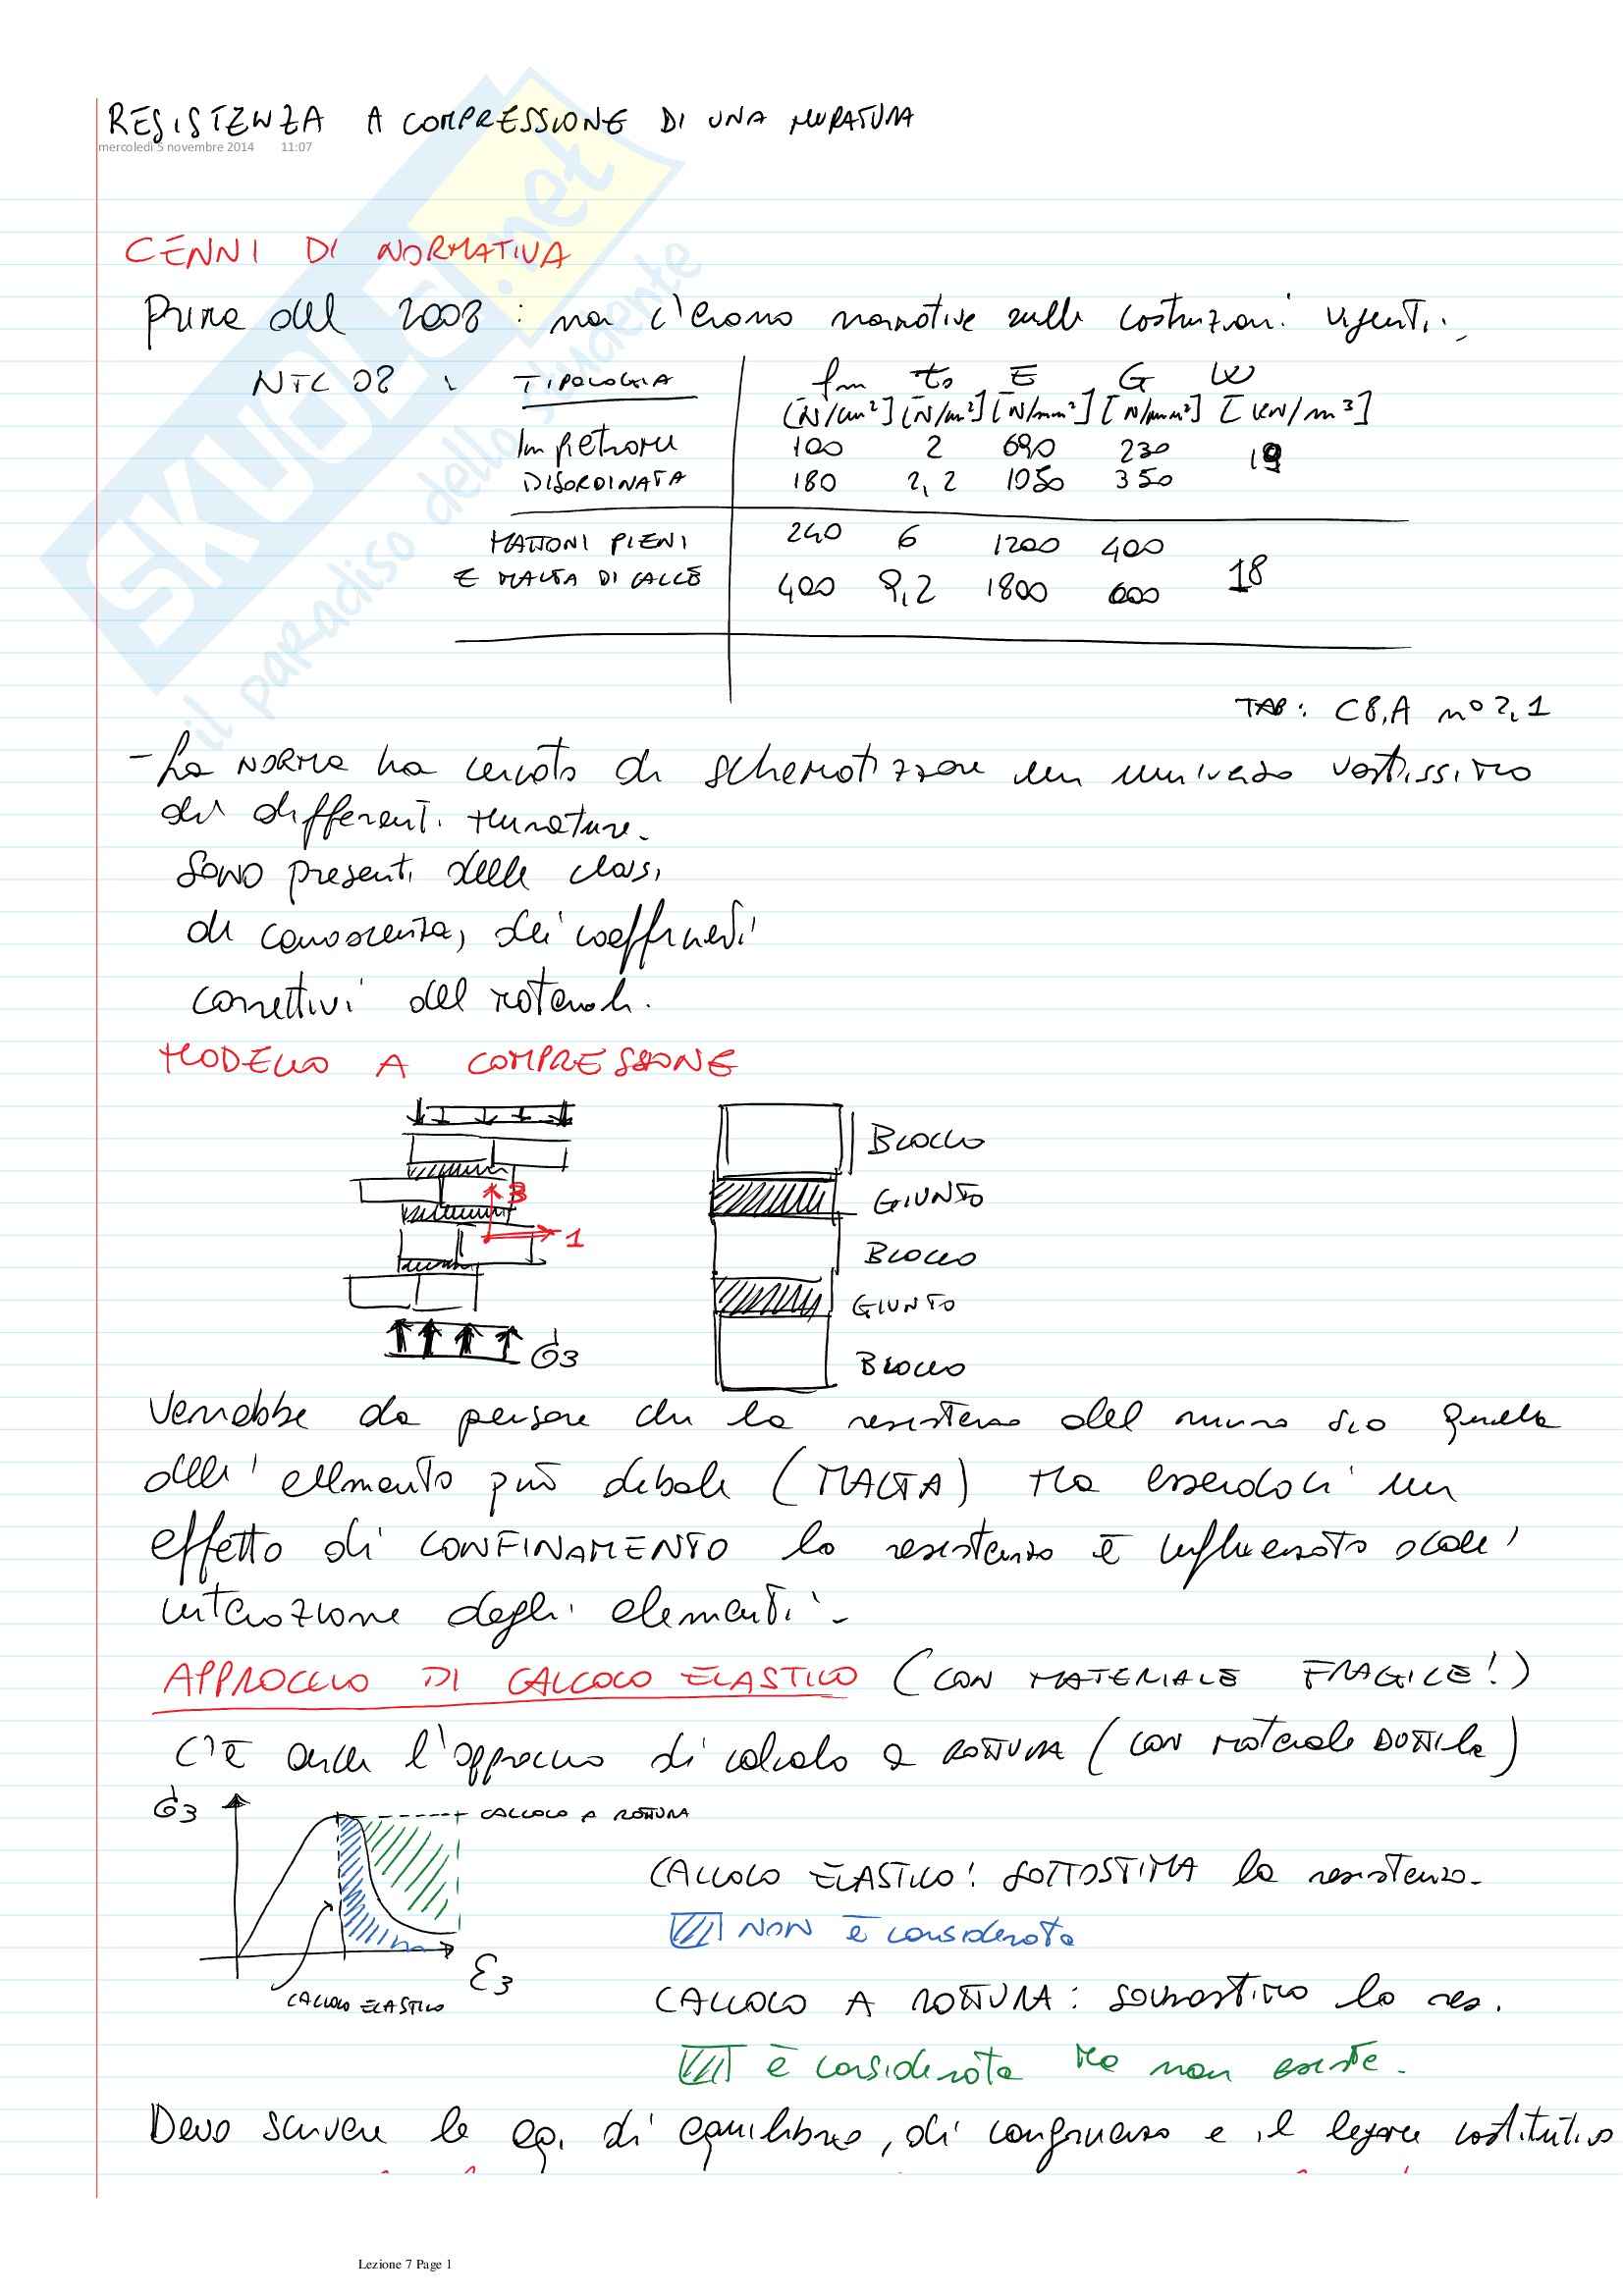 RESISTENZA A COMPRESSIONE DI UNA MURATURA
mercoledì 5 novembre 2014 11:07
SKUOLA.net
il paradiso dello studente
CENNI DI NORMATIVA
Prima del 2008 : non c'erano normative sulle costruzioni vigenti.
NTC 08 : TIPOLOGIA fm τ0 E G W
[N/cm²] [N/m²] [N/mm²] [N/mm²] [kN/m³]
In pietrame 100 2 690 230 19
DISORDINATA 180 2,2 1050 350
MATTONI PIENI 240 6 1200 400
E MALTA DI CALCE 400 9,2 1800 600 18
TAB: C8,A n° 2,1
- La NORMA ha cercato di schematizzare un universo vastissimo
di differenti murature.
Sono presenti delle classi
di conoscenza, dei coefficienti
correttivi del materiali.
MODELLO A COMPRESSIONE
BLOCCO
3 GIUNTO
1 BLOCCO
GIUNTO
σ3 BLOCCO
Verrebbe da pensare che la resistenza del muro sia quella
dell'elemento più debole (MALTA) ma essendoci un
effetto di CONFINAMENTO la resistenza è influenzata dall'
interazione degli elementi.
APPROCCIO DI CALCOLO ELASTICO (CON MATERIALE FRAGILE!)
C'è anche l'approccio di calcolo a ROTTURA (con materiale DUTTILE)
σ3 CALCOLO A ROTTURA
CALCOLO ELASTICO: SOTTOSTIMA la resistenza.
NON è considerata
ε3
CALCOLO ELASTICO
CALCOLO A ROTTURA: sovrastimo la res.
è considerata ma non esiste.
Devo scrivere le eq. di equilibrio, di congruenza e il legame costitutivo
Lezione 7 Page 1